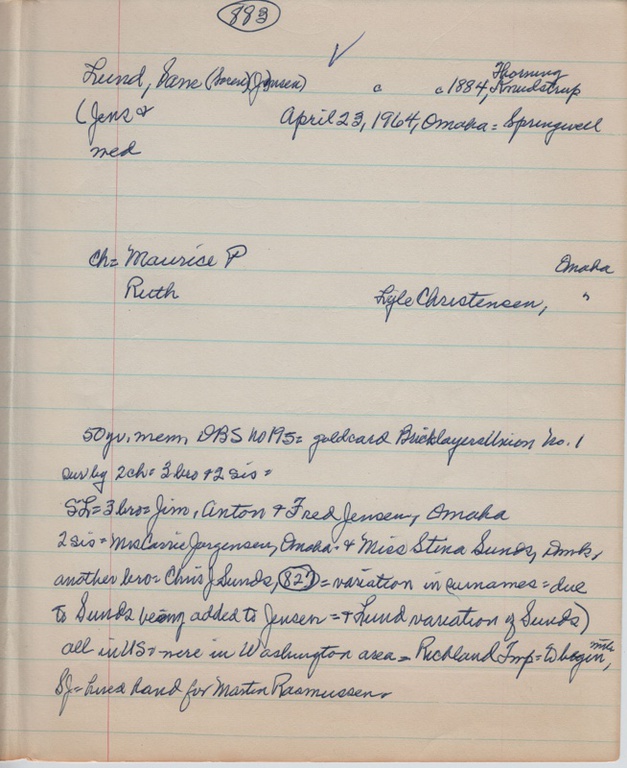 883
Lund, Sane (Soren) (Jensen) c c 1884, Thorning Knudstrup
(Jens &
April 23, 1964, Omaha = Springwell
med
ch= Maurice P Omaha
Ruth Lyle Christensen, "
50 yr. mem, DBS no 195 = gold card Bricklayers Union No. 1
sur by 2 ch = 3 bro & 2 sis =
SL = 3 bro = Jim, Anton & Fred Jensen, Omaha
2 sis = Mrs Carrie Jorgensen, Omaha & Miss Stina Sunds, Dmk,
another bro = Chris J Sunds, 827 = variation in surnames = due
to Sunds being added to Jensen = & Lund variation of Sunds)
all in US = were in Washington area = Richland Twp =
SJ = hired hand for Martin Rasmussen.